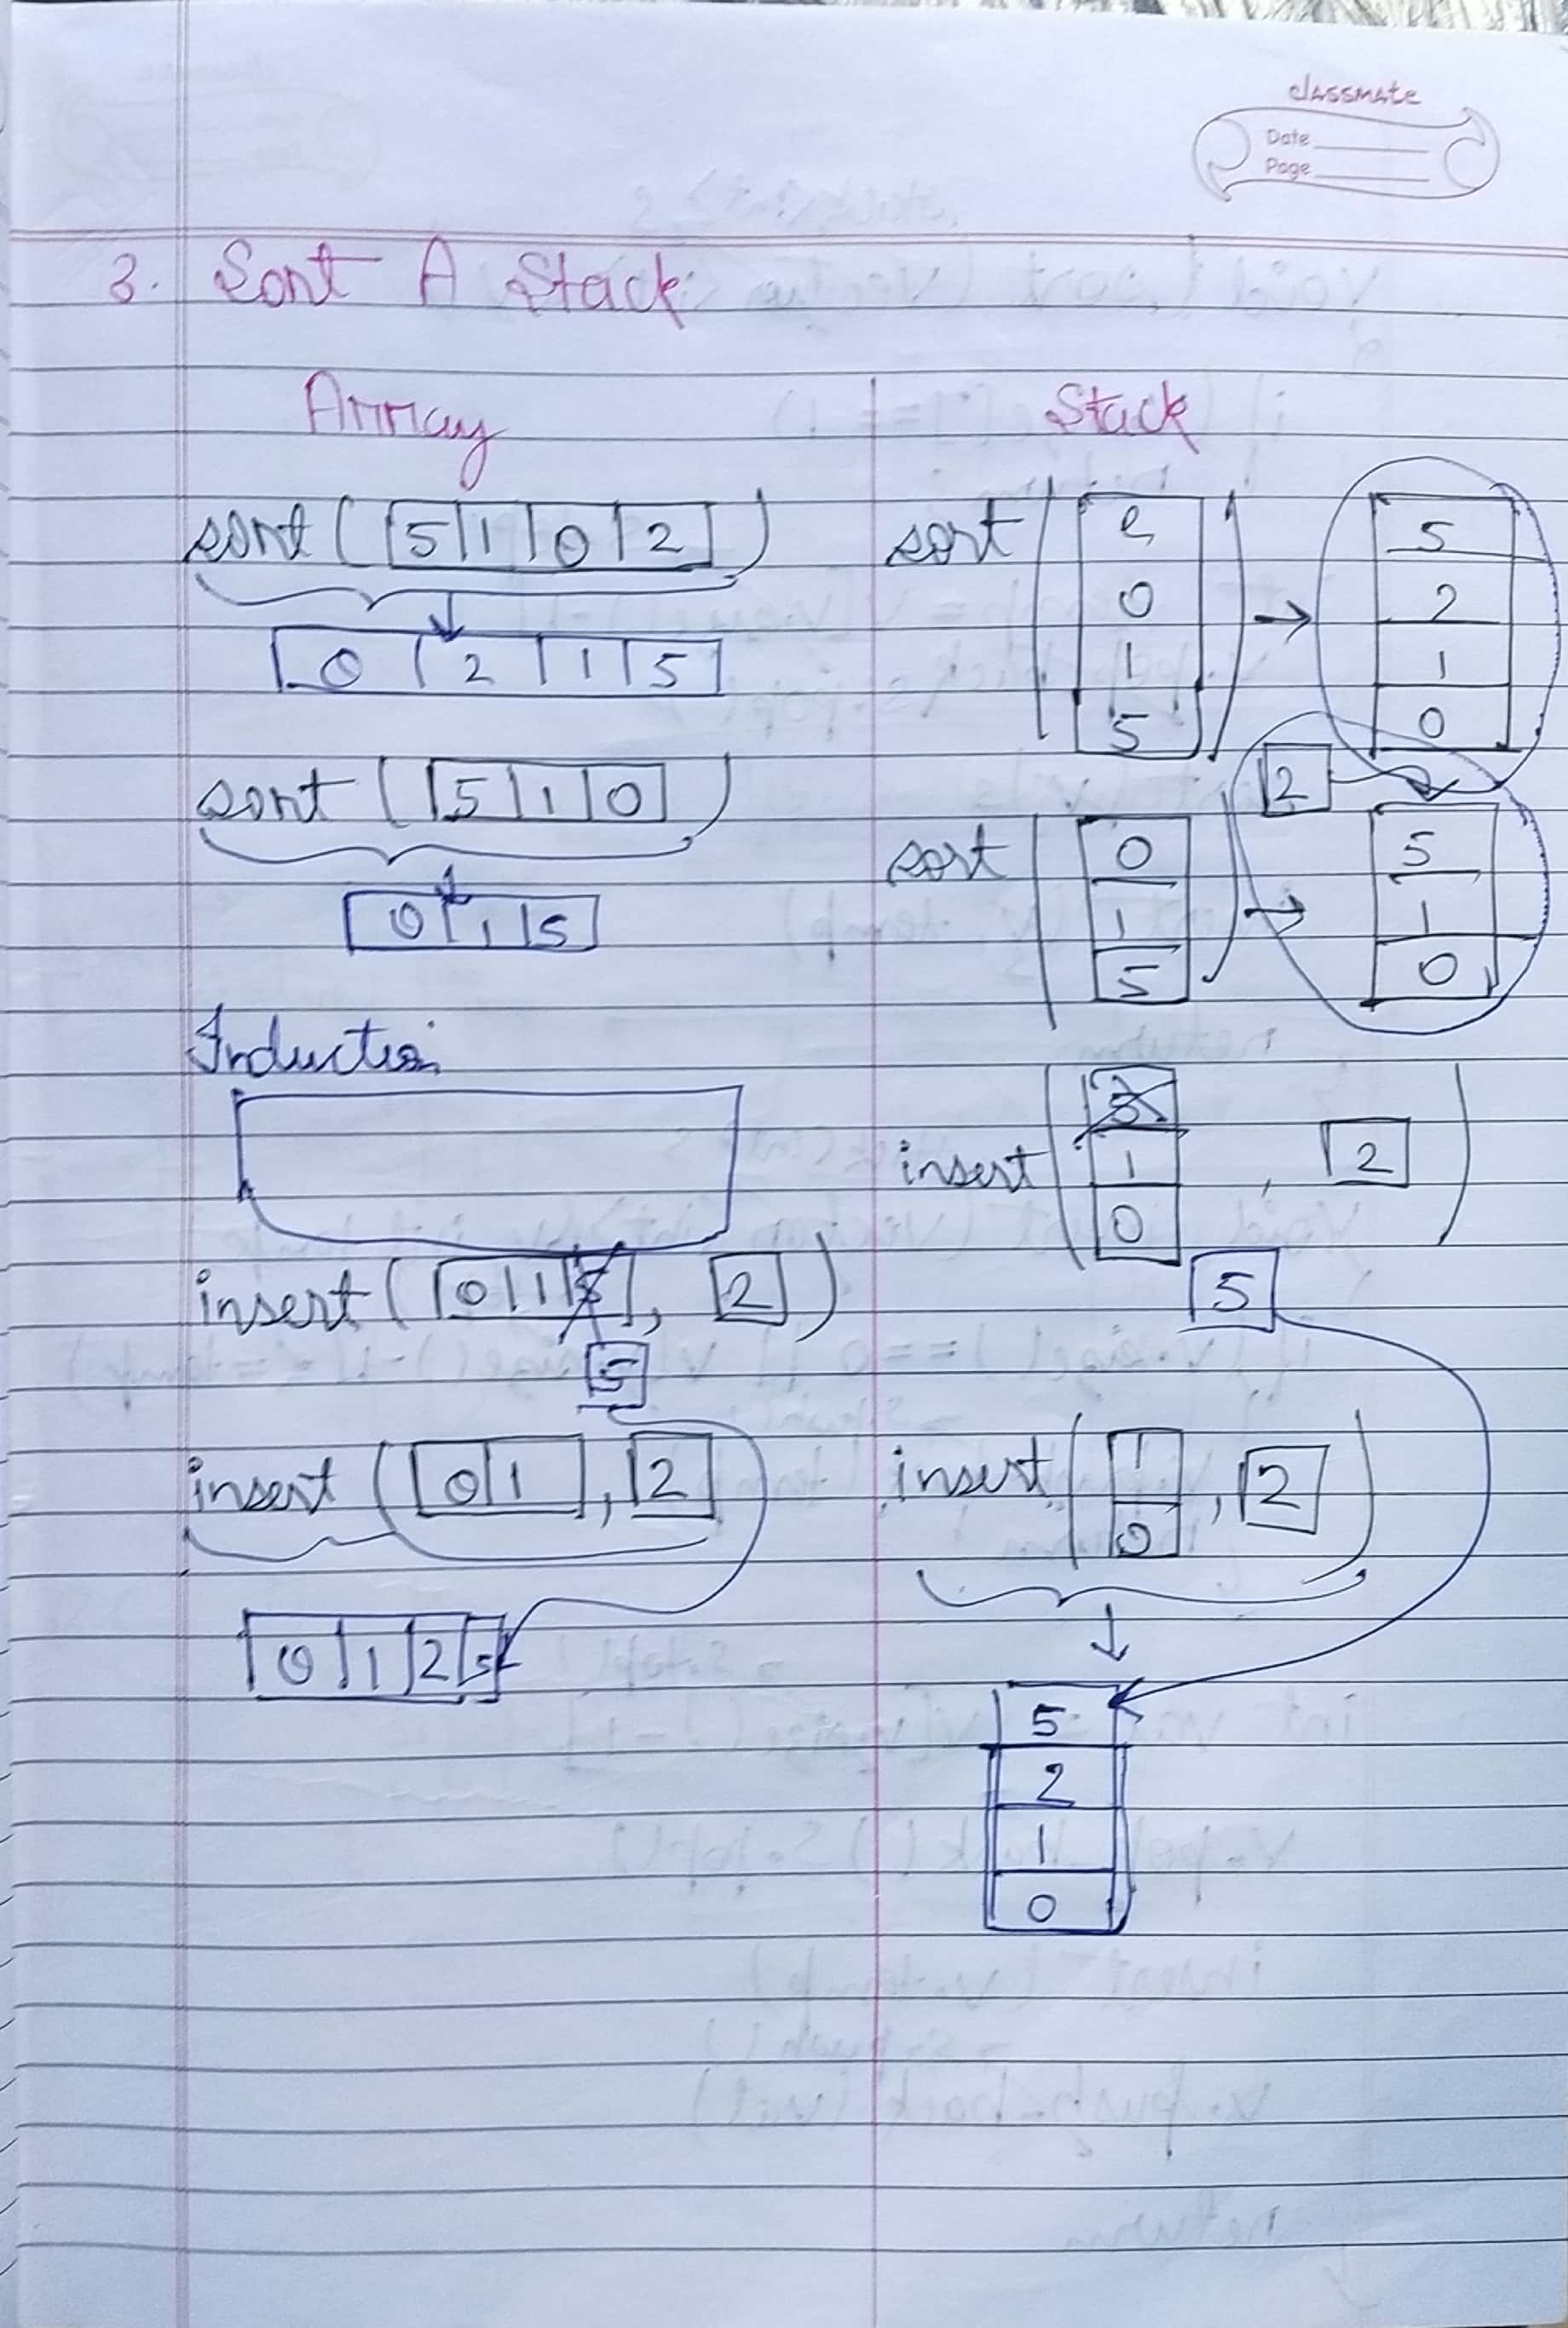 classmate
Date
Page
3. Sort A Stack
Array
sort ( 5 | 1 | 0 | 2 )
0 | 2 | 1 | 5
sort ( 5 | 1 | 0 )
0 | 1 | 5
Induction
insert ( 0 | 1 | 5 , 2 )
5
insert ( 0 | 1 , 2 )
0 | 1 | 2 | 5
Stack
sort
2
0
1
5
→
5
2
1
0
2
sort
0
1
5
→
5
1
0
insert
5
1
0
, 2
5
insert
1
0
, 2
5
2
1
0